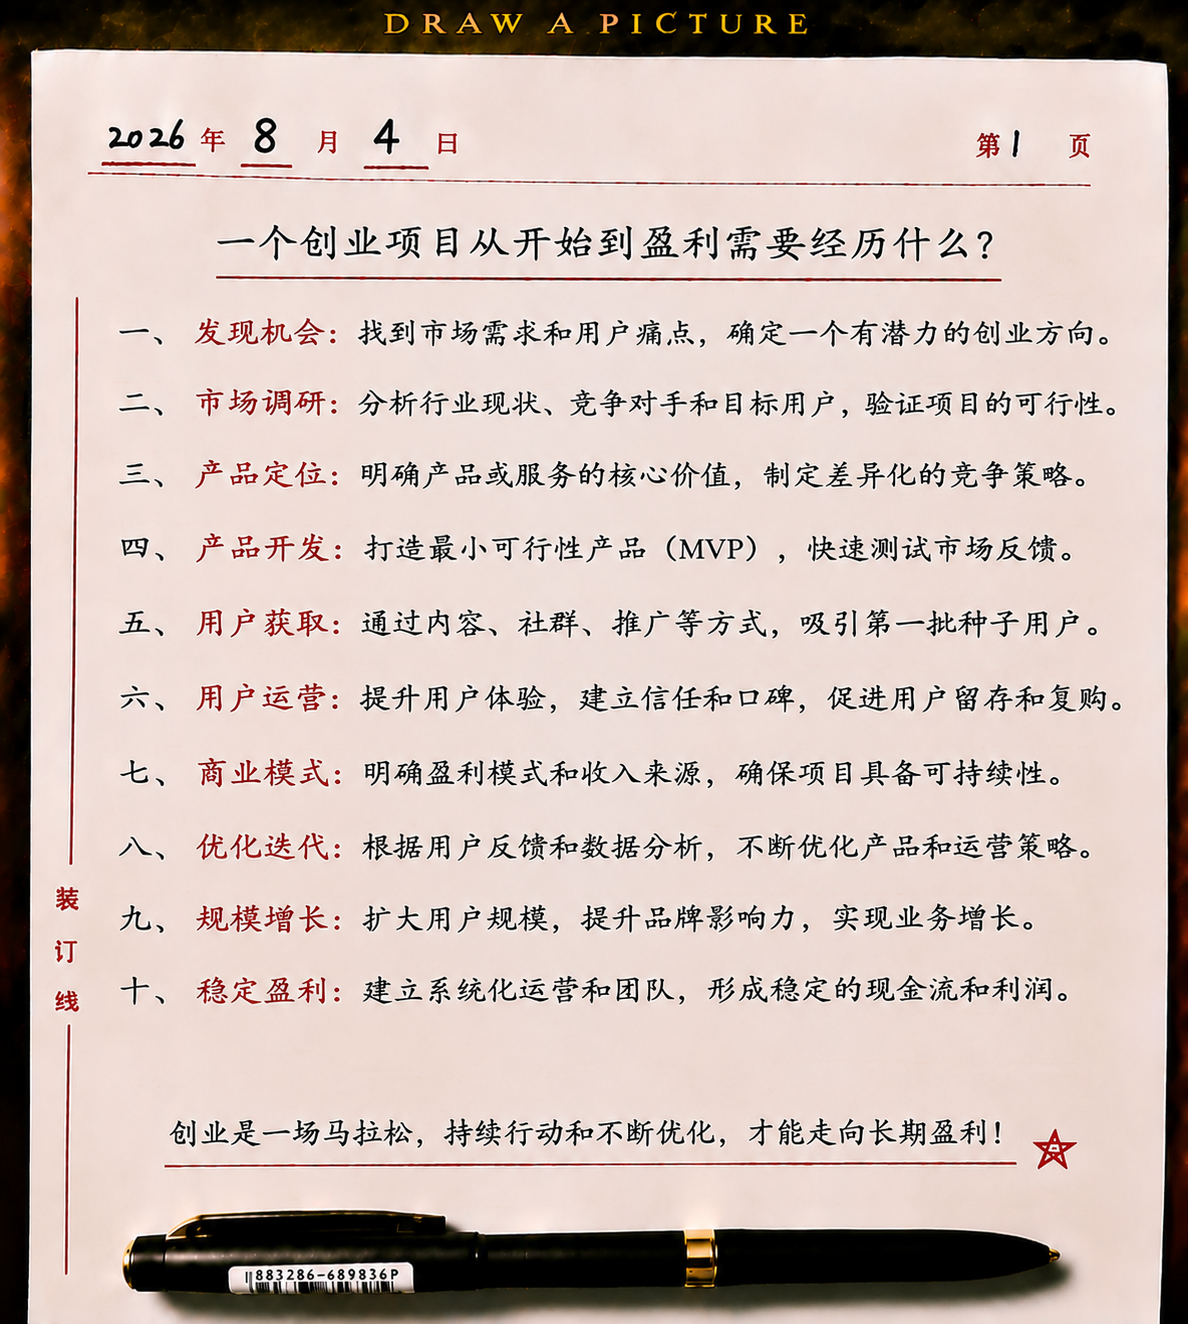 DRAW A PICTURE
2026 年 8 月 4 日 第 1 页
一个创业项目从开始到盈利需要经历什么？
一、 发现机会：找到市场需求和用户痛点，确定一个有潜力的创业方向。
二、 市场调研：分析行业现状、竞争对手和目标用户，验证项目的可行性。
三、 产品定位：明确产品或服务的核心价值，制定差异化的竞争策略。
四、 产品开发：打造最小可行性产品（MVP），快速测试市场反馈。
五、 用户获取：通过内容、社群、推广等方式，吸引第一批种子用户。
六、 用户运营：提升用户体验，建立信任和口碑，促进用户留存和复购。
七、 商业模式：明确盈利模式和收入来源，确保项目具备可持续性。
八、 优化迭代：根据用户反馈和数据分析，不断优化产品和运营策略。
九、 规模增长：扩大用户规模，提升品牌影响力，实现业务增长。
十、 稳定盈利：建立系统化运营和团队，形成稳定的现金流和利润。
装
订
线
创业是一场马拉松，持续行动和不断优化，才能走向长期盈利！
883286-689836P